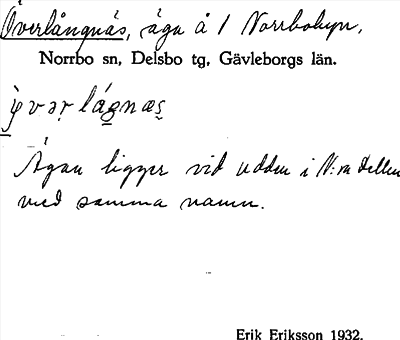 Överlångnäs, äga å 1 Norrbobyn,
Norrbo sn, Delsbo tg, Gävleborgs län.
Ägan ligger vid udden i N:ra Dellen
med samma namn.
Erik Eriksson 1932.